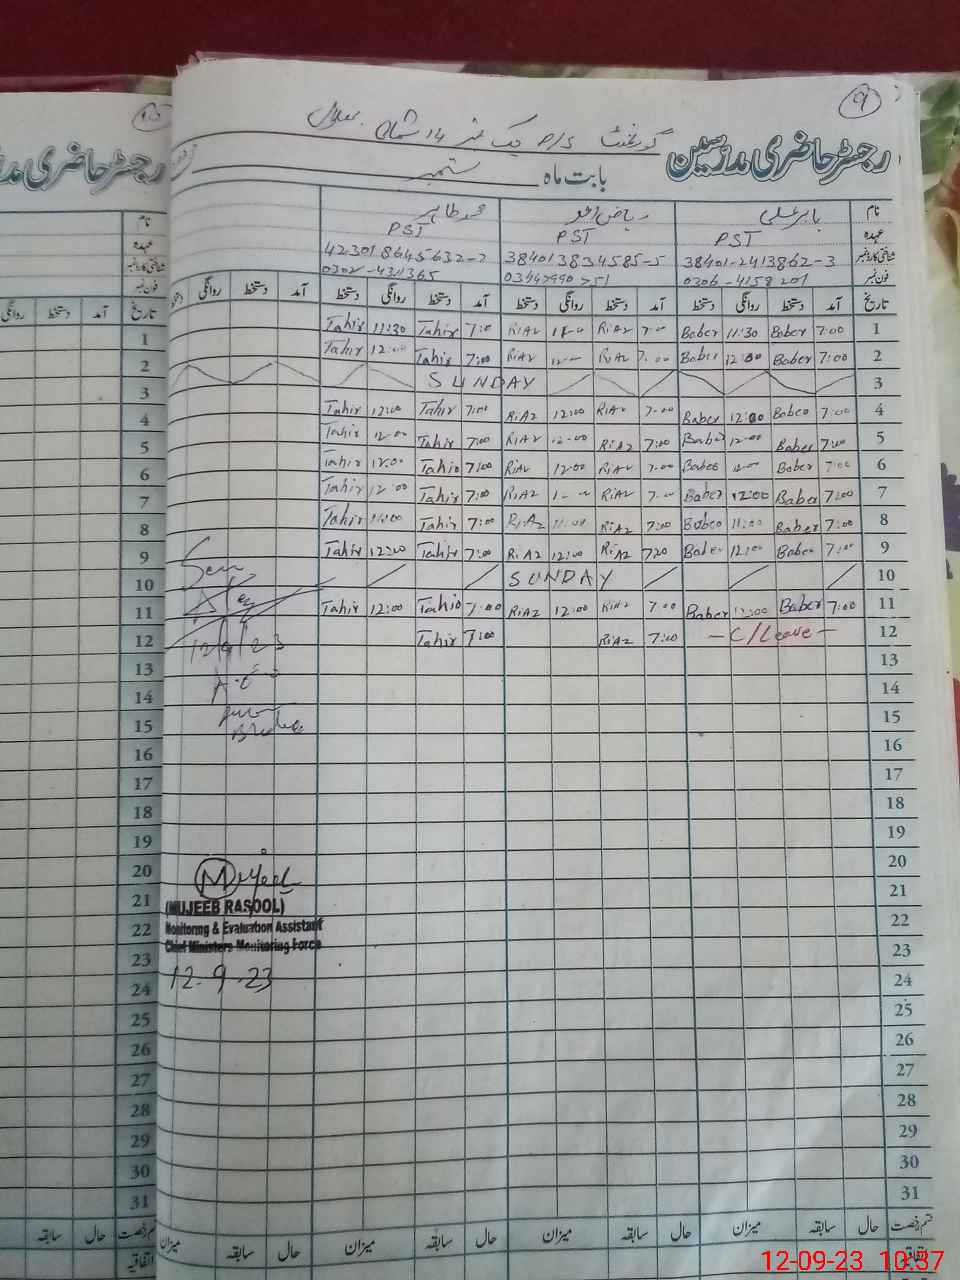 9
گورنمنٹ P/S چک نمبر 14 شمالی
رجسٹر حاضری مدرسین
بابت ماہ ستمبر
نام بابر علی ریاض احمد محمد طاہر
عہدہ PST PST PST
شناختی کارڈ نمبر 38401-2413862-3 384013834585-5 423018645632-7
فون نمبر 0306-4158201 0302-4311365
تاریخ آمد دستخط روانگی دستخط آمد دستخط روانگی دستخط آمد دستخط روانگی دستخط آمد دستخط روانگی دستخط
1 7:00 Baber 11:30 Baber 7:00 RIAZ RIAZ 7:00 Tahir 11:30 Tahir
2 7:00 Baber 12:00 Baber 7:00 RIAZ 12:00 RIAZ 7:00 Tahir 12:00 Tahir
3 SUNDAY
4 7:00 Baber 12:00 Baber 7:00 RIAZ 12:00 RIAZ 7:00 Tahir 12:00 Tahir
5 7:00 Baber 12:00 Baber 7:00 RIAZ 12:00 RIAZ 7:00 Tahir 12:00 Tahir
6 7:00 Baber 12:00 Baber 7:00 RIAZ 12:00 RIAZ 7:00 Tahir 12:00 Tahir
7 7:00 Baber 12:00 Baber 7:00 RIAZ RIAZ 7:00 Tahir 12:00 Tahir
8 7:00 Baber 11:00 Baber 7:00 RIAZ 11:00 RIAZ 7:00 Tahir 11:00 Tahir
9 7:00 Baber 12:00 Baber 7:00 RIAZ 12:00 RIAZ 7:00 Tahir 12:00 Tahir
10 SUNDAY
11 7:00 Baber 12:00 Baber 7:00 RIAZ 12:00 RIAZ 7:00 Tahir 12:00 Tahir
12 C/Leave 7:00 RIAZ 7:00 Tahir
13
14
15
16
17
18
19
20
21
22
23
24
25
26
27
28
29
30
31
Seen
12/9/23
Mujeeb
(MUJEEB RASOOL)
Monitoring & Evaluation Assistant
Chief Ministers Monitoring Force
12-9-23
حال سابقہ میزان حال سابقہ میزان حال سابقہ میزان
اتفاقیہ
رجسٹر حاضری
نام
عہدہ
شناختی کارڈ نمبر
فون نمبر
تاریخ آمد دستخط روانگی
1
2
3
4
5
6
7
8
9
10
11
12
13
14
15
16
17
18
19
20
21
22
23
24
25
26
27
28
29
30
31
حال سابقہ
اتفاقیہ
12-09-23 10:37